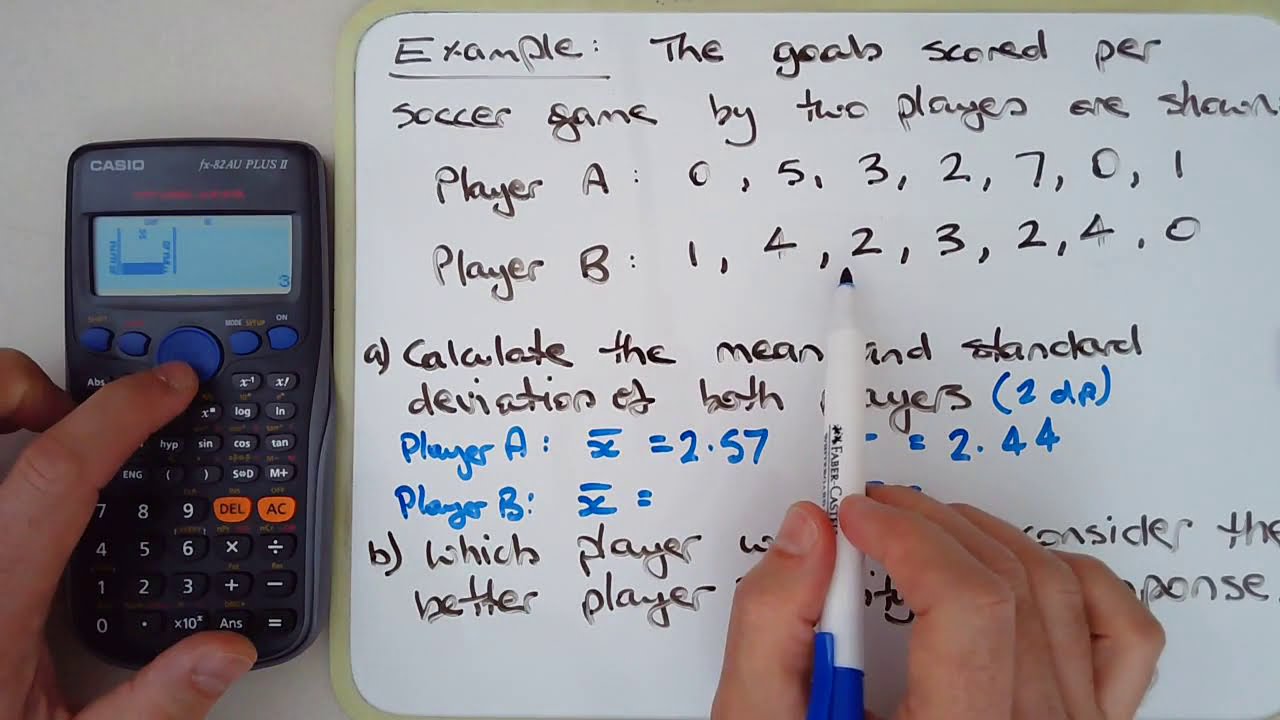 Example: The goals scored per
soccer game by two players are shown
Player A: 0, 5, 3, 2, 7, 0, 1
Player B: 1, 4, 2, 3, 2, 4, 0
a) Calculate the mean and standard
deviation of both players (2 dp)
Player A: x̄ = 2.57 = 2.44
Player B: x̄ = =
b) Which player consider the
better player
CASIO
fx-82AU PLUS II
SHIFT MODE SETUP ON
Abs x⁻¹ x!
log ln
hyp sin cos tan
ENG ( ) S⇔D M+
7 8 9 DEL AC
4 5 6 × ÷
1 2 3 + −
0 . ×10ˣ Ans =
FABER-CASTE